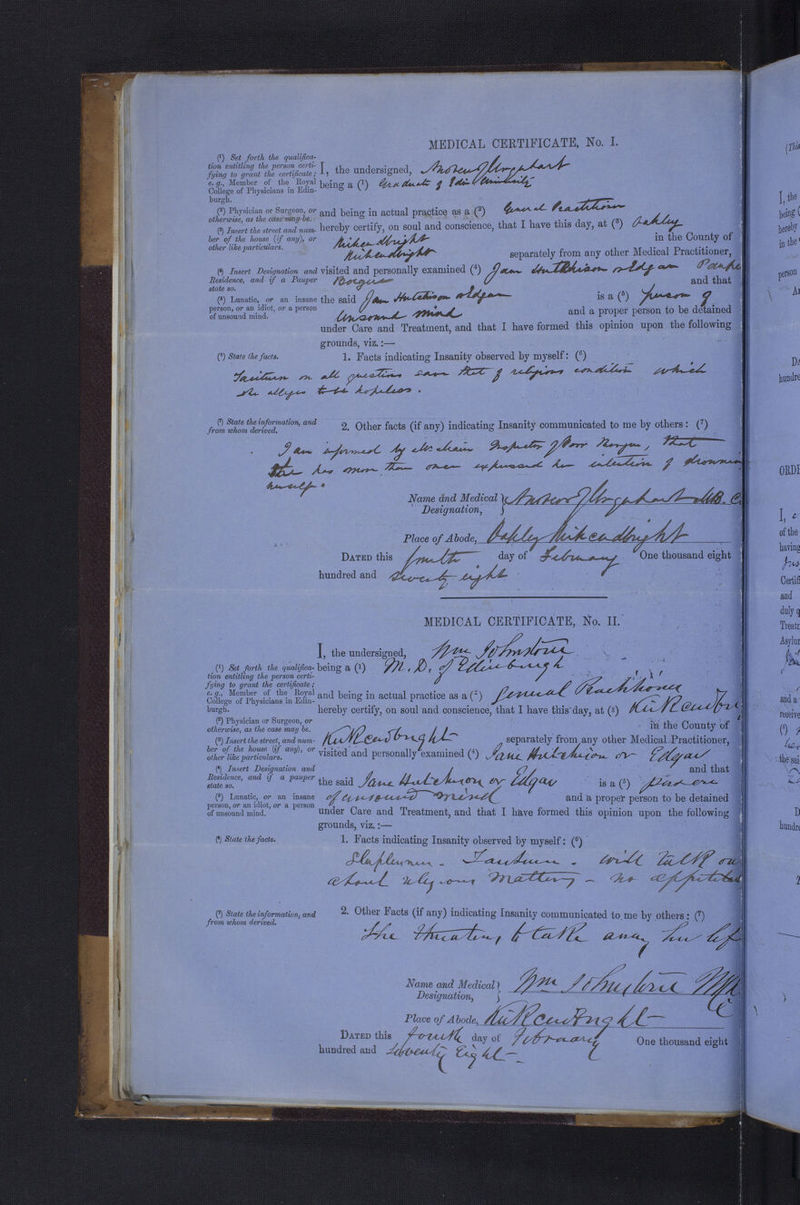 MEDICAL CERTIFICATE, No. I.
(1) Set forth the qualifica-
tion entitling the person certi-
fying to grant the certificate;
e. g., Member of the Royal
College of Physicians in Edin-
burgh.
(2) Physician or Surgeon, or
otherwise, as the case may be.
(3) Insert the street and num-
ber of the house (if any), or
other like particulars.
(4) Insert Designation and
Residence, and if a Pauper
state so.
(5) Lunatic, or an insane
person, or an idiot, or a person
of unsound mind.
I, the undersigned, Andrew Urquhart
being a (1) Graduate of Edin University
and being in actual practice as a (2) General Practitioner
hereby certify, on soul and conscience, that I have this day, at (3) Oakley
Kirkcudbright in the County of
Kirkcudbright separately from any other Medical Practitioner,
visited and personally examined (4) Jane Hutchison or Edgar Pauper
Borgue and that
the said Jane Hutchison or Edgar is a (5) person of
unsound mind and a proper person to be detained
under Care and Treatment, and that I have formed this opinion upon the following
grounds, viz.:—
(6) State the facts.
1. Facts indicating Insanity observed by myself: (6)
Taciturn on all questions save that of religious condition which
she alleges to be hopeless.
(7) State the information, and
from whom derived.
2. Other facts (if any) indicating Insanity communicated to me by others: (7)
I am informed by Inspector of Poor Borgue, that
she has more than once expressed her intention of drowning
herself.
Name and Medical Designation, Andrew Urquhart MB. C
Place of Abode, Oakley Kirkcudbright
DATED this fourth day of February One thousand eight
hundred and seventy eight
MEDICAL CERTIFICATE, No. II.
(1) Set forth the qualifica-
tion entitling the person certi-
fying to grant the certificate;
e. g., Member of the Royal
College of Physicians in Edin-
burgh.
(2) Physician or Surgeon, or
otherwise, as the case may be.
(3) Insert the street, and num-
ber of the house (if any), or
other like particulars.
(4) Insert Designation and
Residence, and if a pauper
state so.
(5) Lunatic, or an insane
person, or an idiot, or a person
of unsound mind.
I, the undersigned, Wm Johnstone
being a (1) M.D. of Edinburgh
and being in actual practice as a (2) General Practitioner
hereby certify, on soul and conscience, that I have this day, at (3) Kirkcudbri
in the County of
Kirkcudbright separately from any other Medical Practitioner,
visited and personally examined (4) Jane Hutchison or Edgar
and that
the said Jane Hutchison or Edgar is a (5) person
of unsound mind and a proper person to be detained
under Care and Treatment, and that I have formed this opinion upon the following
grounds, viz.:—
(6) State the facts.
1. Facts indicating Insanity observed by myself: (6)
Sleeplessness - Taciturn - will talk on
about religious matters - no appetite
(7) State the information, and
from whom derived.
2. Other Facts (if any) indicating Insanity communicated to me by others: (7)
She threatens to take away her life
Name and Medical Designation, Wm Johnstone MD
Place of Abode, Kirkcudbright
DATED this fourth day of February One thousand eight
hundred and seventy Eight
I, the
being (
hereby
in the
person
hundre
ORDE
I,
of the
having
Certifi
and
duly q
Treatm
Asylum
and a
receive
the sai
hundre